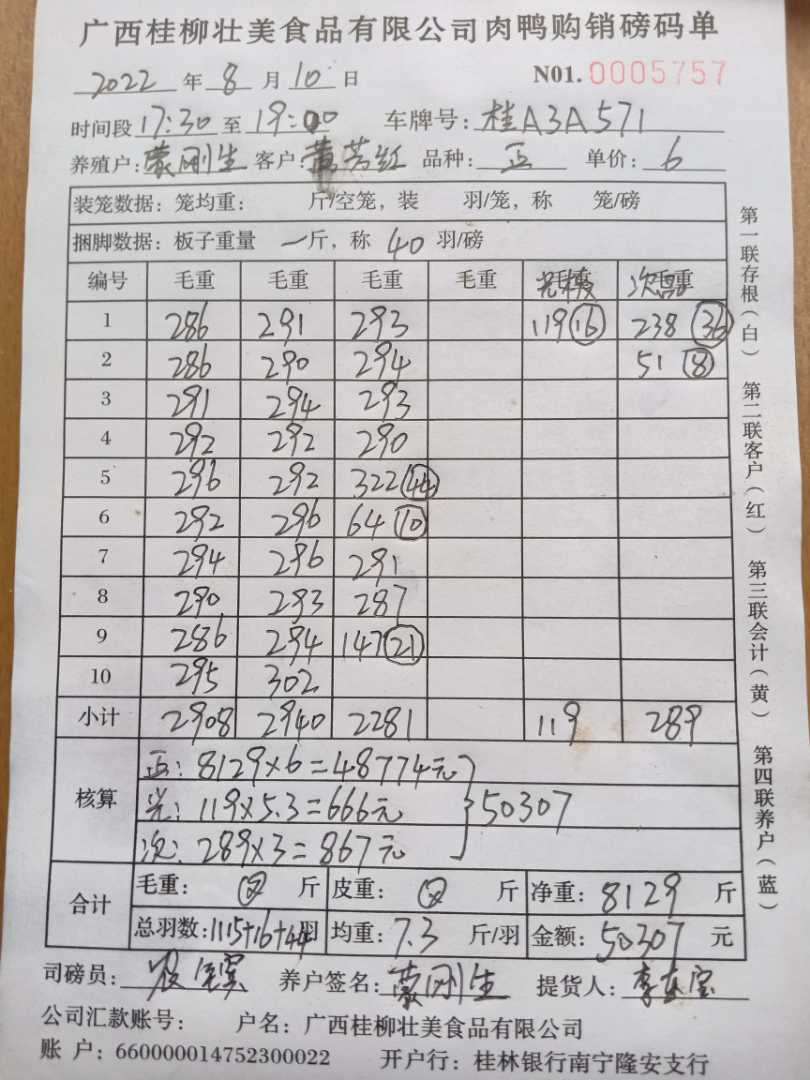 广西桂柳壮美食品有限公司肉鸭购销磅码单
2022 年 8 月 10 日 N01. 0005757
时间段 17:30 至 19:00 车牌号: 桂A3A571
养殖户: 蒙刚生 客户: 黄芳红 品种: 正 单价: 6
装笼数据: 笼均重: 斤/空笼, 装 羽/笼, 称 笼/磅
捆脚数据: 板子重量 一斤, 称 40 羽/磅
编号 毛重 毛重 毛重 毛重 次品
1 286 291 293 119 16 238 36
2 286 290 294 51 8
3 291 294 293
4 292 292 290
5 296 292 322 44
6 292 296 64 10
7 294 296 291
8 290 293 287
9 286 294 147 21
10 295 302
小计 2908 2940 2281 119 289
核算
正: 8129×6=48774元
光: 119×5.3=666元 50307
次: 289×3=867元
合计
毛重: 斤 皮重: 斤 净重: 8129 斤
总羽数: 1115+16+44羽 均重: 7.3 斤/羽 金额: 50307 元
司磅员: 养户签名: 蒙刚生 提货人:
公司汇款账号: 户名: 广西桂柳壮美食品有限公司
账 户: 660000014752300022 开户行: 桂林银行南宁隆安支行
第一联存根(白) 第二联客户(红) 第三联会计(黄) 第四联养户(蓝)